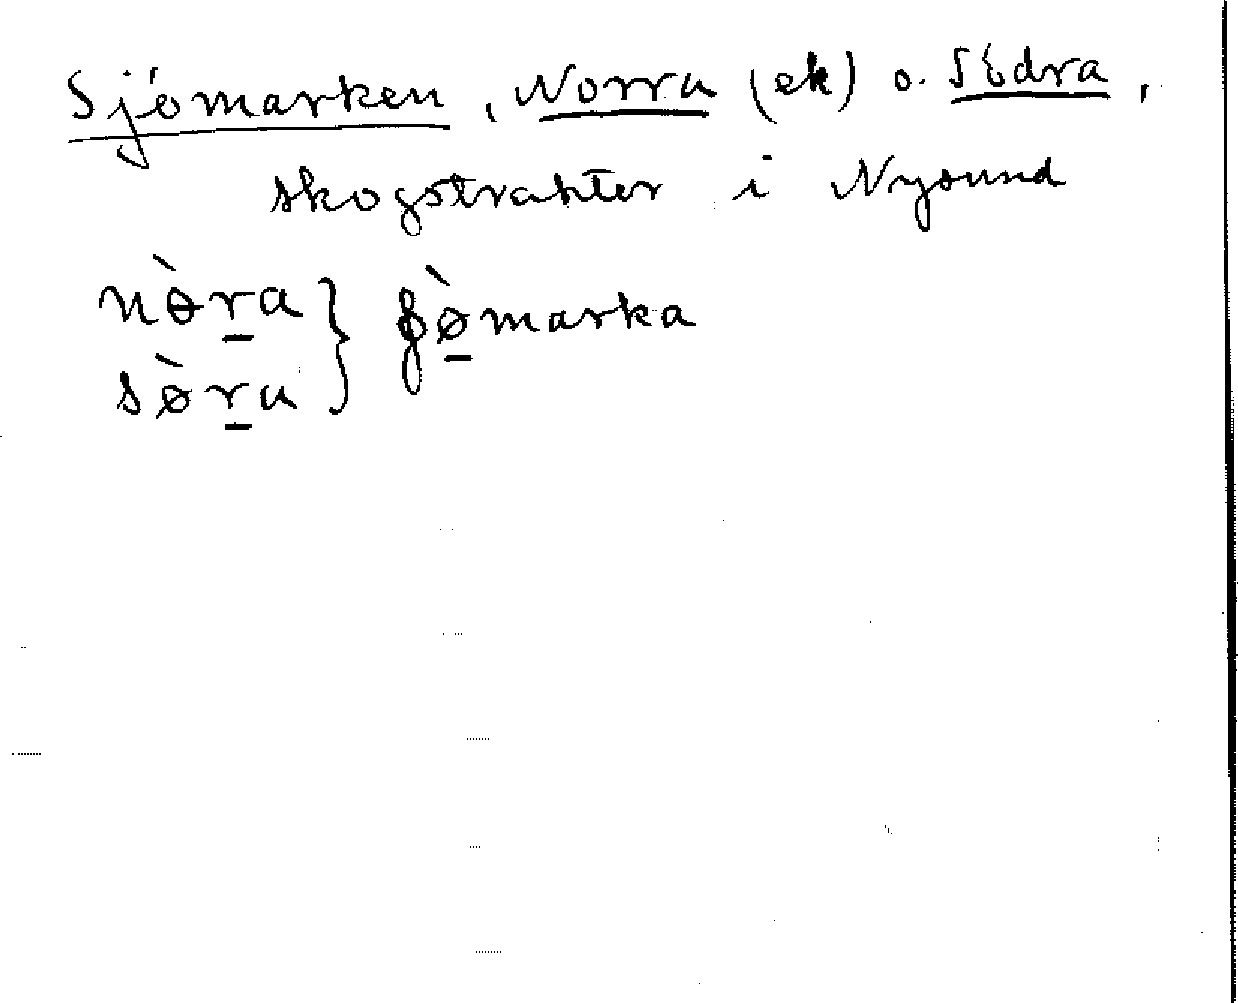 Sjömarken, Norra (ek) o. Södra,
skogstrakter i Nysund
nɵ̀r̲a } ʃø̲̀marka
sø̀r̲a